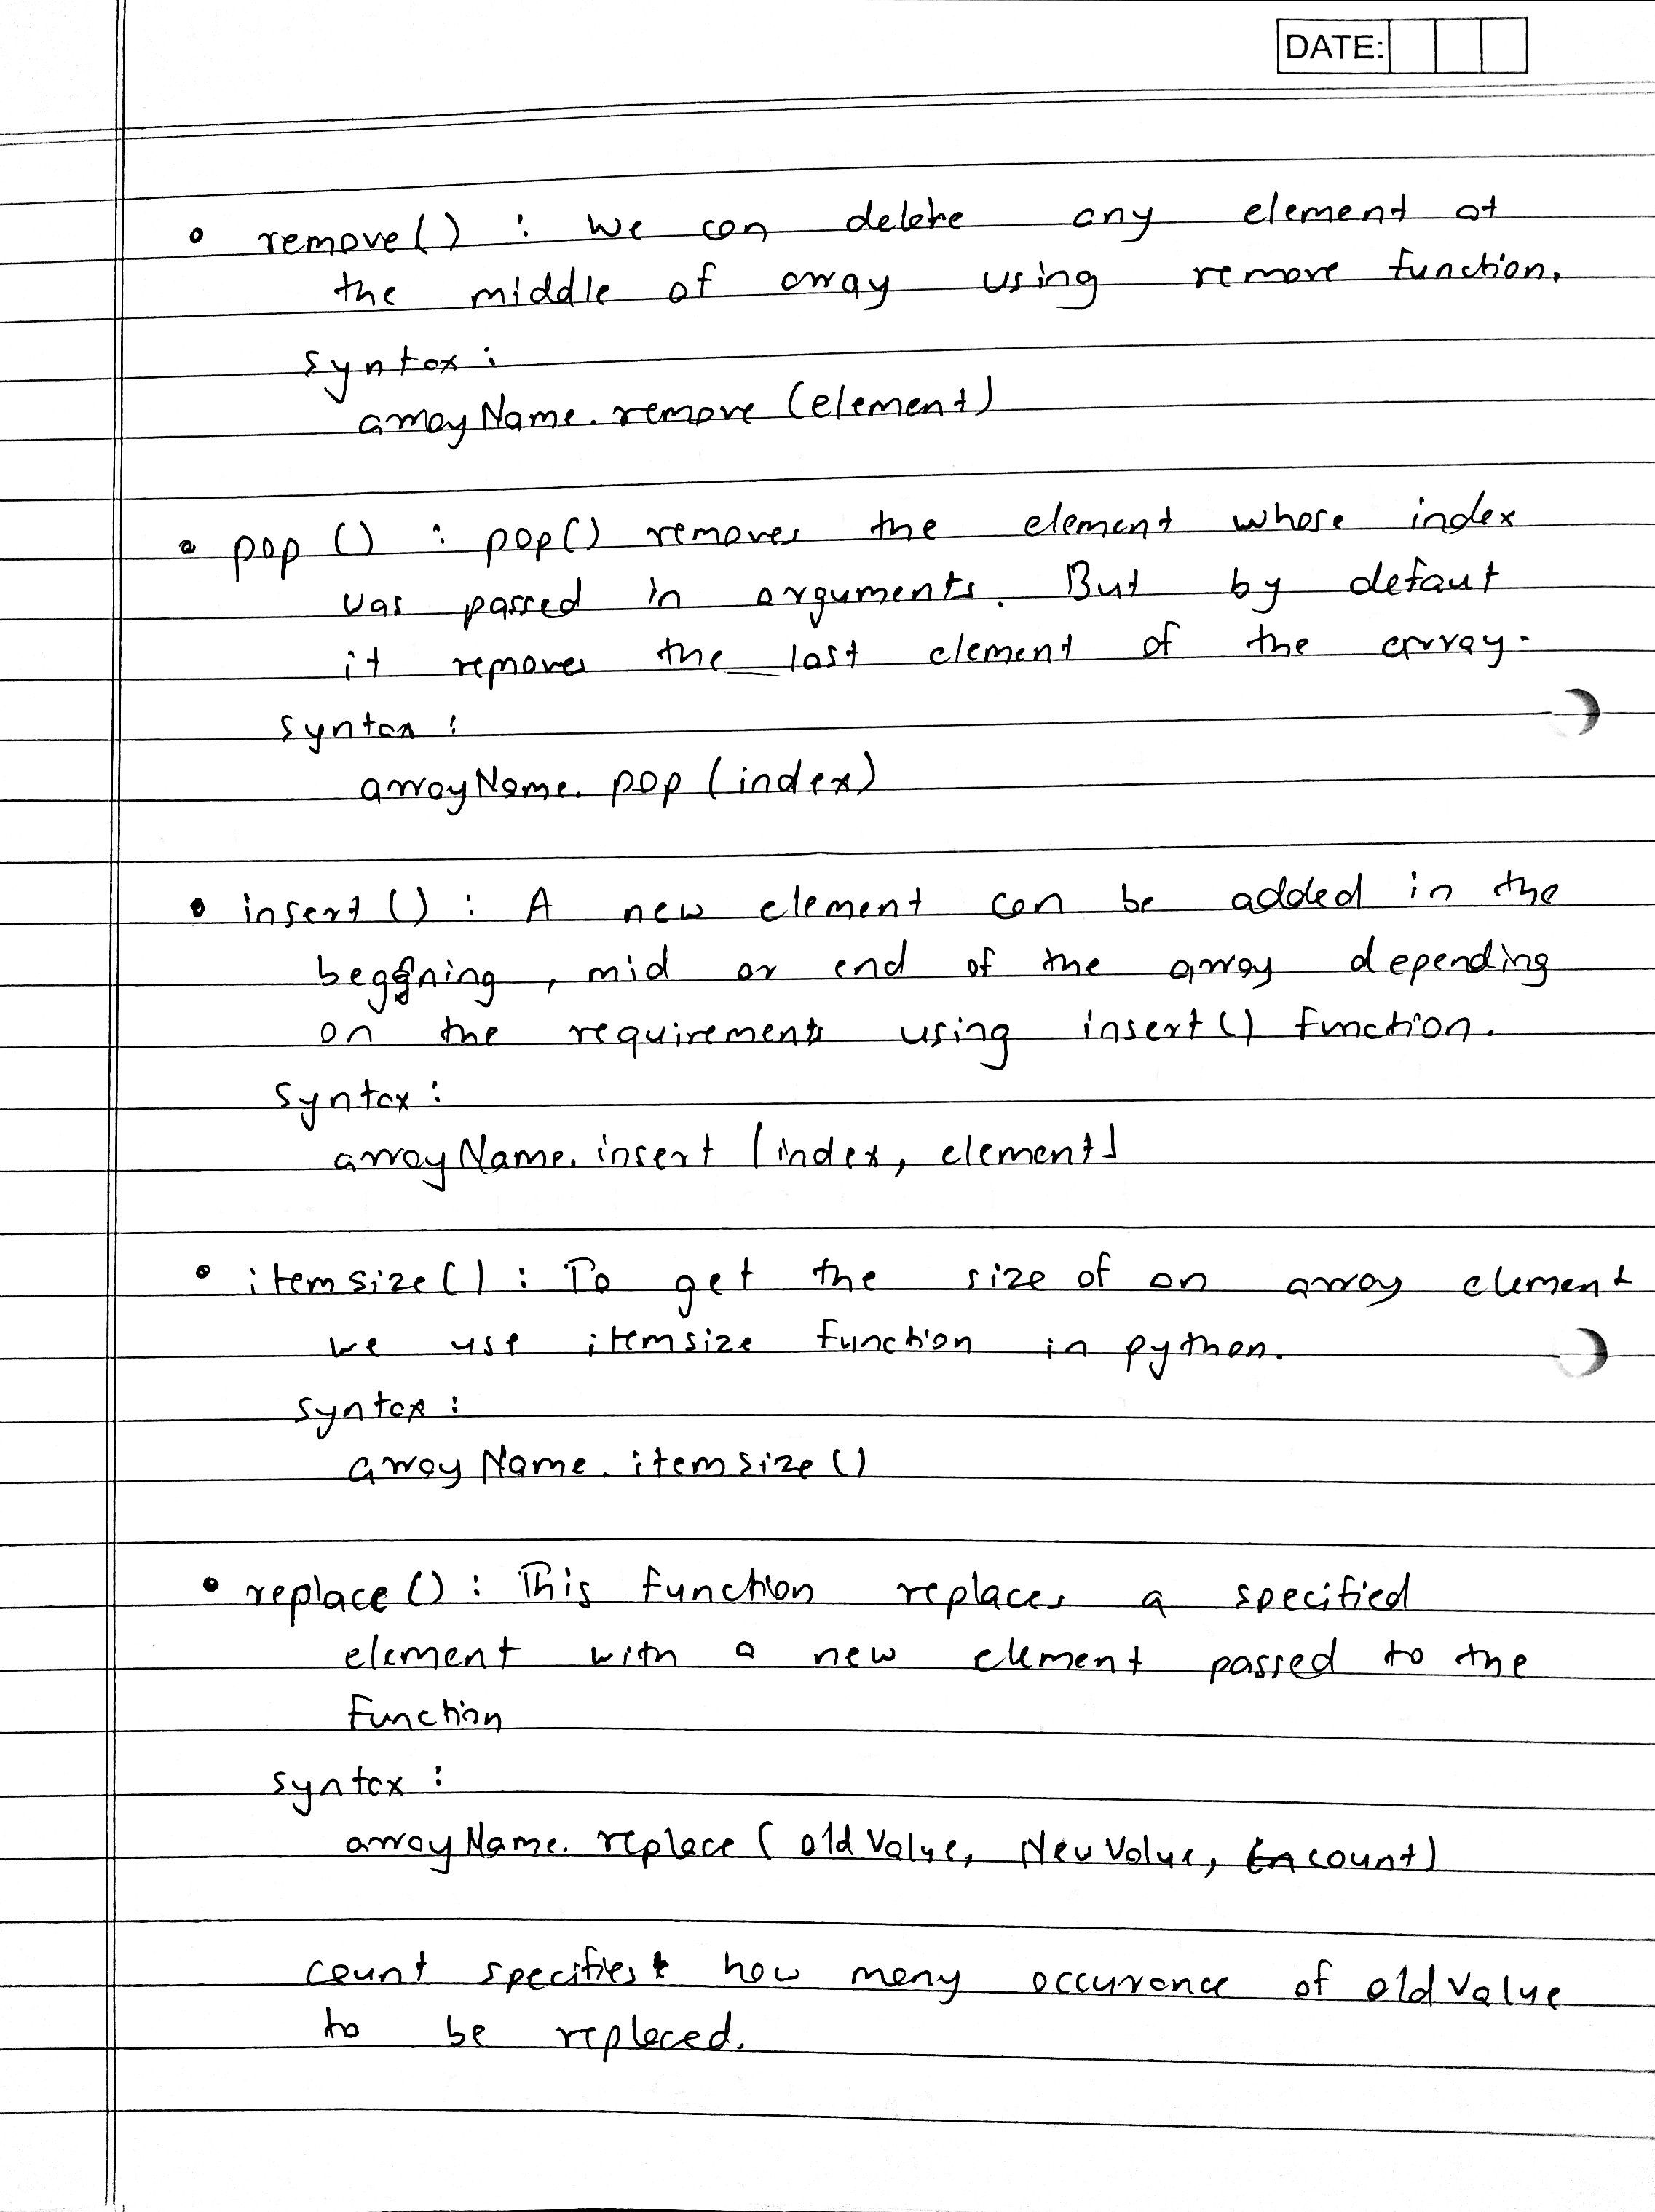 DATE:
• remove() : we can delete any element at
the middle of array using remove function.
syntax :
arrayName.remove (element)
• pop () : pop() removes the element whose index
was passed in arguments. But by defaut
it removes the last element of the array.
syntax :
arrayName.pop (index)
• insert () : A new element can be added in the
beggning, mid or end of the array depending
on the requirements using insert() function.
syntax :
arrayName.insert (index, element)
• itemsize() : To get the size of an array element
we use itemsize function in python.
syntax :
arrayName.itemsize()
• replace () : This function replaces a specified
element with a new element passed to the
function
syntax :
arrayName.replace ( oldValue, NewValue, count)
count specifies how many occurance of oldValue
to be replaced.